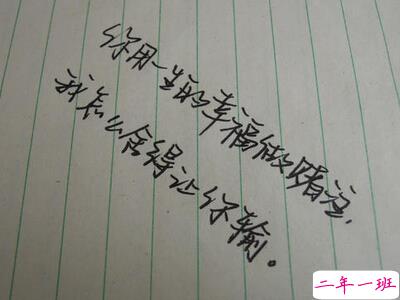 你用一生的幸福做赌注,
我怎么舍得让你输。
二年一班